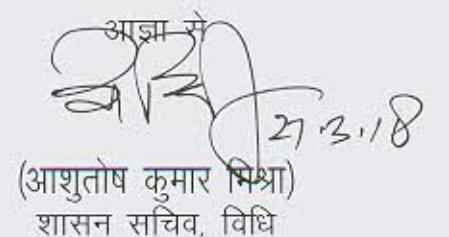 आज्ञा से
27.3.18
(आशुतोष कुमार मिश्रा)
शासन सचिव, विधि